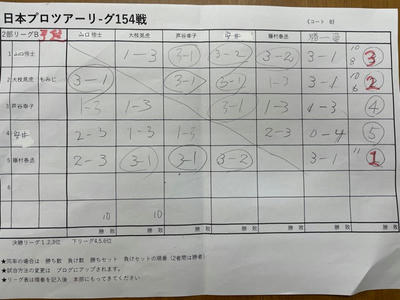 日本プロツアーリーグ154戦
(コート 8)
2部リーグB 予選 山口悟士 大枝晃虎 芦谷幸子 安井 藤村泰丞 勝一敗
1 山口悟士 1-3 3-1 3-2 3-2 3-1 10 8 3
2 大枝晃虎 もみじ 3-1 3-1 3-1 1-3 3-1 10 6 2
3 芦谷幸子 1-3 1-3 3-1 1-3 1-3 4
4 安井 2-3 1-3 1-3 2-3 0-4 5
5 藤村泰丞 2-3 3-1 3-1 3-2 3-1 11 1
6
10 10
勝 敗 勝 敗 勝 敗 勝 敗 勝 敗 勝 敗
決勝リーグ 1,2,3位 下リーグ4,5,6位
★同率の場合は 勝ち数 負け数 勝ちセット 負けセットの順番(2者間は勝者)
★試合方法の変更は ブログにアップされます。
★リーグ表は順番を記入後 本部にもってきてください